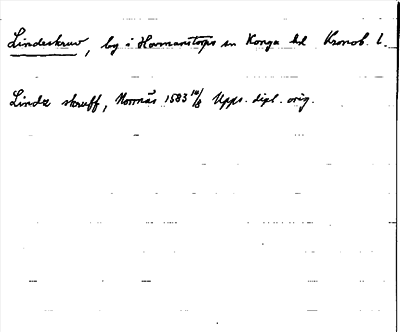 Lindeskruv, by i Hovmanstorps sn Konga hd Kronob. l.
Linde skruff, Norrnäs 1583 10/8 Upps. dipl. orig.